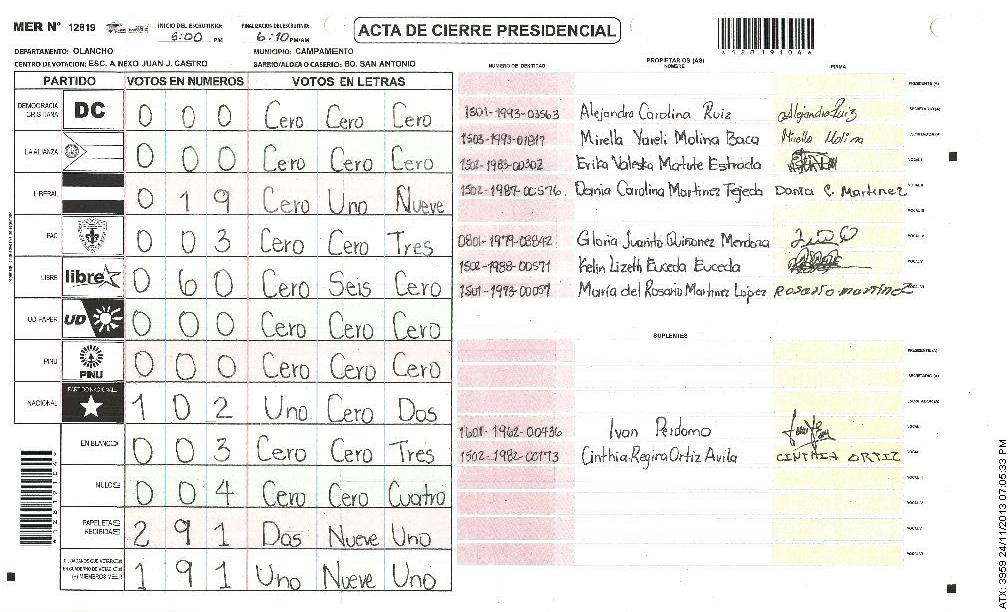 MER N° 12819
INICIO DEL ESCRUTINIO: 5:00 PM
FINALIZACION DEL ESCRUTINIO: 6:10 PM/AM
ACTA DE CIERRE PRESIDENCIAL
DEPARTAMENTO: OLANCHO
MUNICIPIO: CAMPAMENTO
CENTRO DE VOTACION: ESC. ANEXO JUAN J. CASTRO
BARRIO/ALDEA O CASERIO: BO. SAN ANTONIO
PARTIDO VOTOS EN NUMEROS VOTOS EN LETRAS
DEMOCRACIA CRISTIANA DC 0 0 0 Cero Cero Cero
LA ALIANZA 0 0 0 Cero Cero Cero
LIBERAL 0 1 9 Cero Uno Nueve
PAC 0 0 3 Cero Cero Tres
LIBRE libre 0 6 0 Cero Seis Cero
UD-FAPER UD 0 0 0 Cero Cero Cero
PINU PINU 0 0 0 Cero Cero Cero
NACIONAL PARTIDO NACIONAL 1 0 2 Uno Cero Dos
EN BLANCO 0 0 3 Cero Cero Tres
NULOS 0 0 4 Cero Cero Cuatro
PAPELETAS RECIBIDAS 2 9 1 Dos Nueve Uno
1 9 1 Uno Nueve Uno
NUMERO DE IDENTIDAD PROPIETARIOS (AS) NOMBRE FIRMA
PRESIDENTE (A)
1501-1993-03563 Alejandra Carolina Ruiz Alejandra Ruiz SECRETARIO (A)
1503-1993-01817 Mirella Yareli Molina Baca Mirella Molina
1502-1983-00302 Erika Valeska Matute Estrada VOCAL I
1502-1987-00576. Dania Carolina Martinez Tejeda Dania C. Martinez VOCAL II
VOCAL III
0801-1979-03842 Gloria Juanita Quiñonez Mendoza VOCAL IV
1502-1988-00571 Kelin Lizeth Euceda Euceda VOCAL V
1501-1993-00057 Maria del Rosario Martinez Lopez Rosario martinez VOCAL VI
SUPLENTES
PRESIDENTE (A)
SECRETARIO (A)
1601-1962-00436 Ivan Perdomo VOCAL I
1502-1982-00173 Cinthia Regina Ortiz Avila CINTHIA ORTIZ VOCAL II
VOCAL III
VOCAL IV
VOCAL V
VOCAL VI
ATX: 3959 24/11/2013 07:05:33 PM